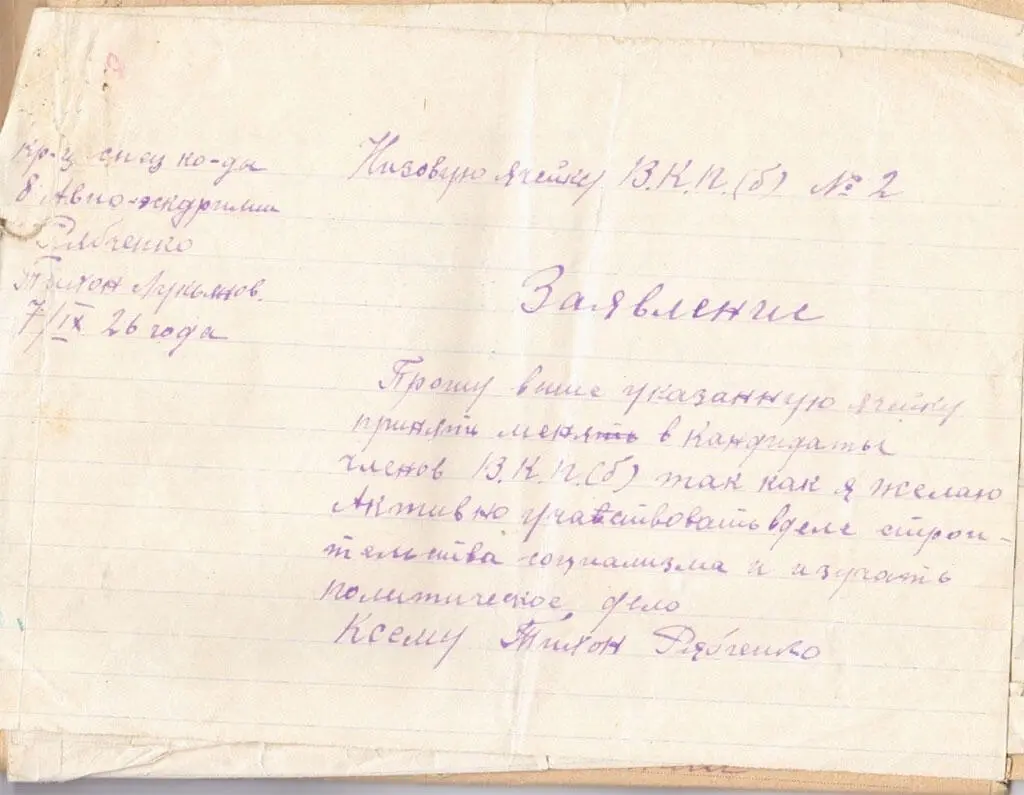 кр-ц спец ко-ды
8 Авио-эскдрилии
Рябченко
Тихон Лукьянов.
7/IX 26 года
Низовую ячейку В.К.П.(б) № 2
Заявление
Прошу выше указанную ячейку
принять менять в кандидаты
членов В.К.П.(б) так как я желаю
Активно участвовать в деле строи-
тельства социализма и изучать
политическое дело
Ксему Тихон Рябченко